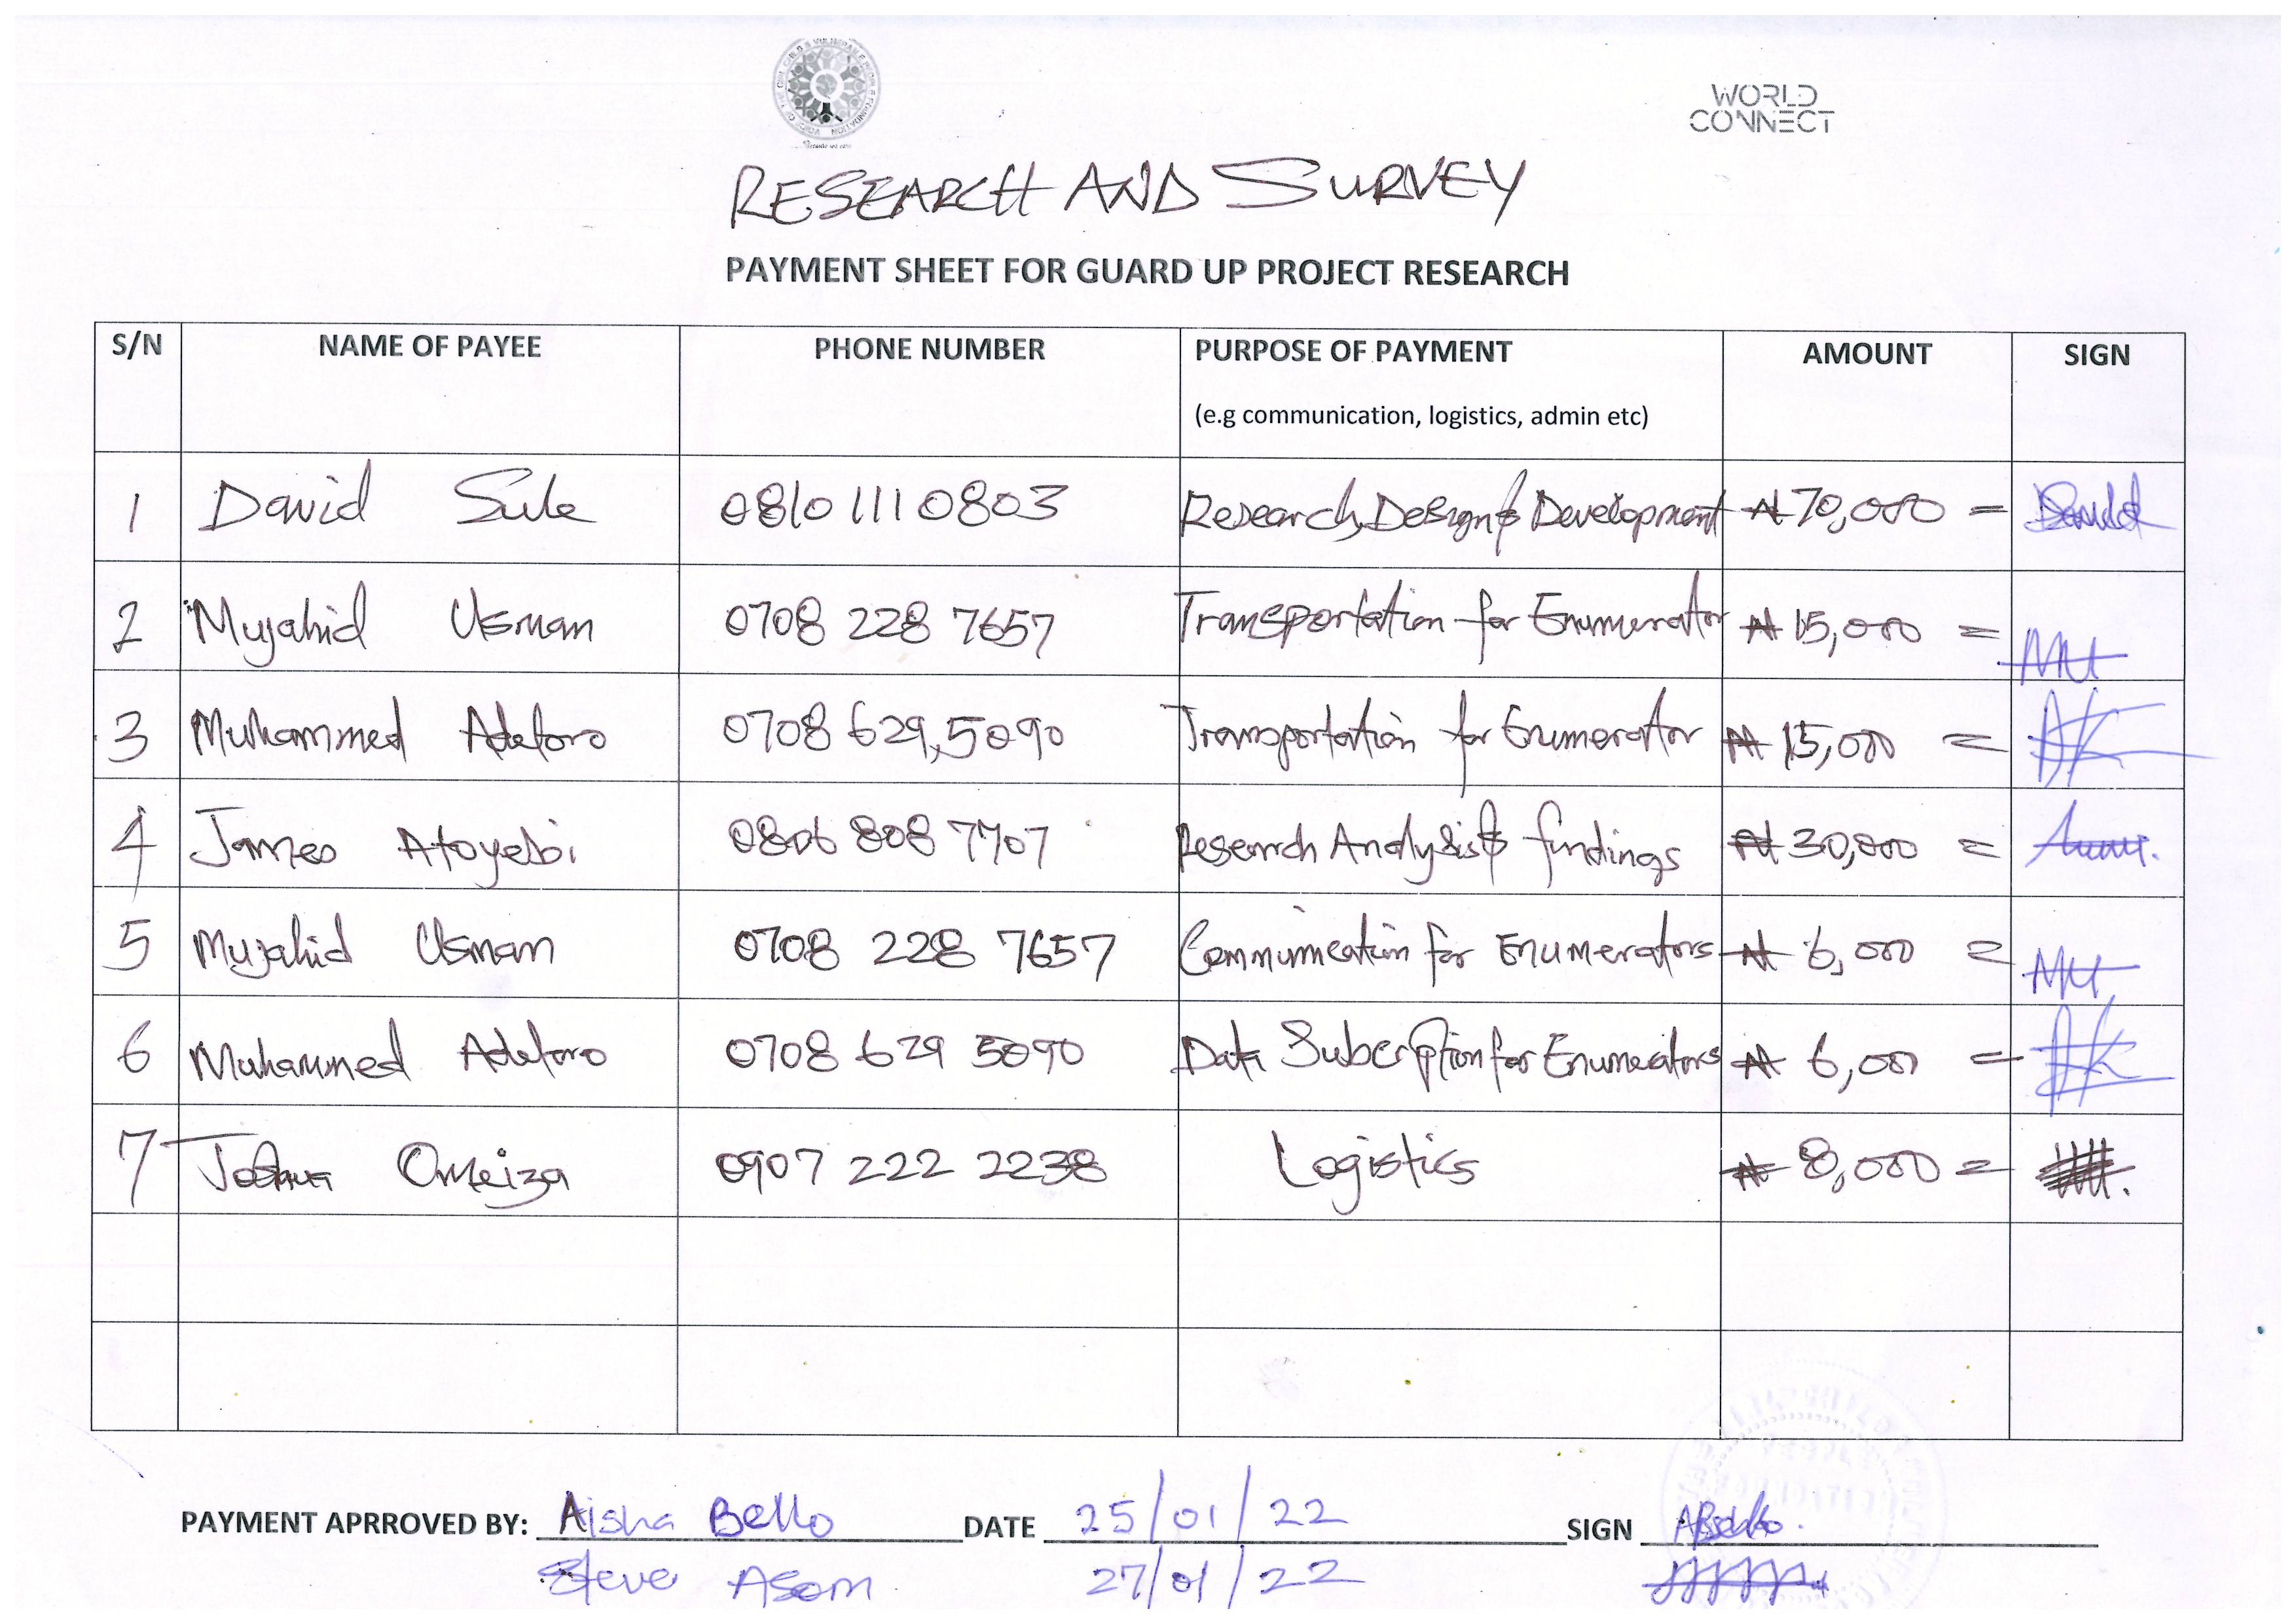 WORLD
CONNECT
RESEARCH AND SURVEY
PAYMENT SHEET FOR GUARD UP PROJECT RESEARCH
S/N NAME OF PAYEE PHONE NUMBER PURPOSE OF PAYMENT AMOUNT SIGN
(e.g communication, logistics, admin etc)
1 David Sule 0810 111 0803 Research, Design & Development ₦70,000 =
2 Mujahid Usman 0708 228 7657 Transportation for Enumerator ₦15,000 =
3 Muhammed Adeforo 0708 629,5090 Transportation for Enumerator ₦15,000 =
4 James Atoyebi 0806 808 7707 Research Analysis & findings ₦30,000 =
5 Mujahid Usman 0708 228 7657 Communication for Enumerators ₦6,000 =
6 Muhammed Adeforo 0708 629 5090 Data Subcription for Enumerators ₦6,000 =
7 Joshua Omeiza 0907 222 2238 Logistics ₦8,000 =
PAYMENT APRROVED BY: Aisha Bello DATE 25/01/22 SIGN ABello.
Steve Asom 27/01/22